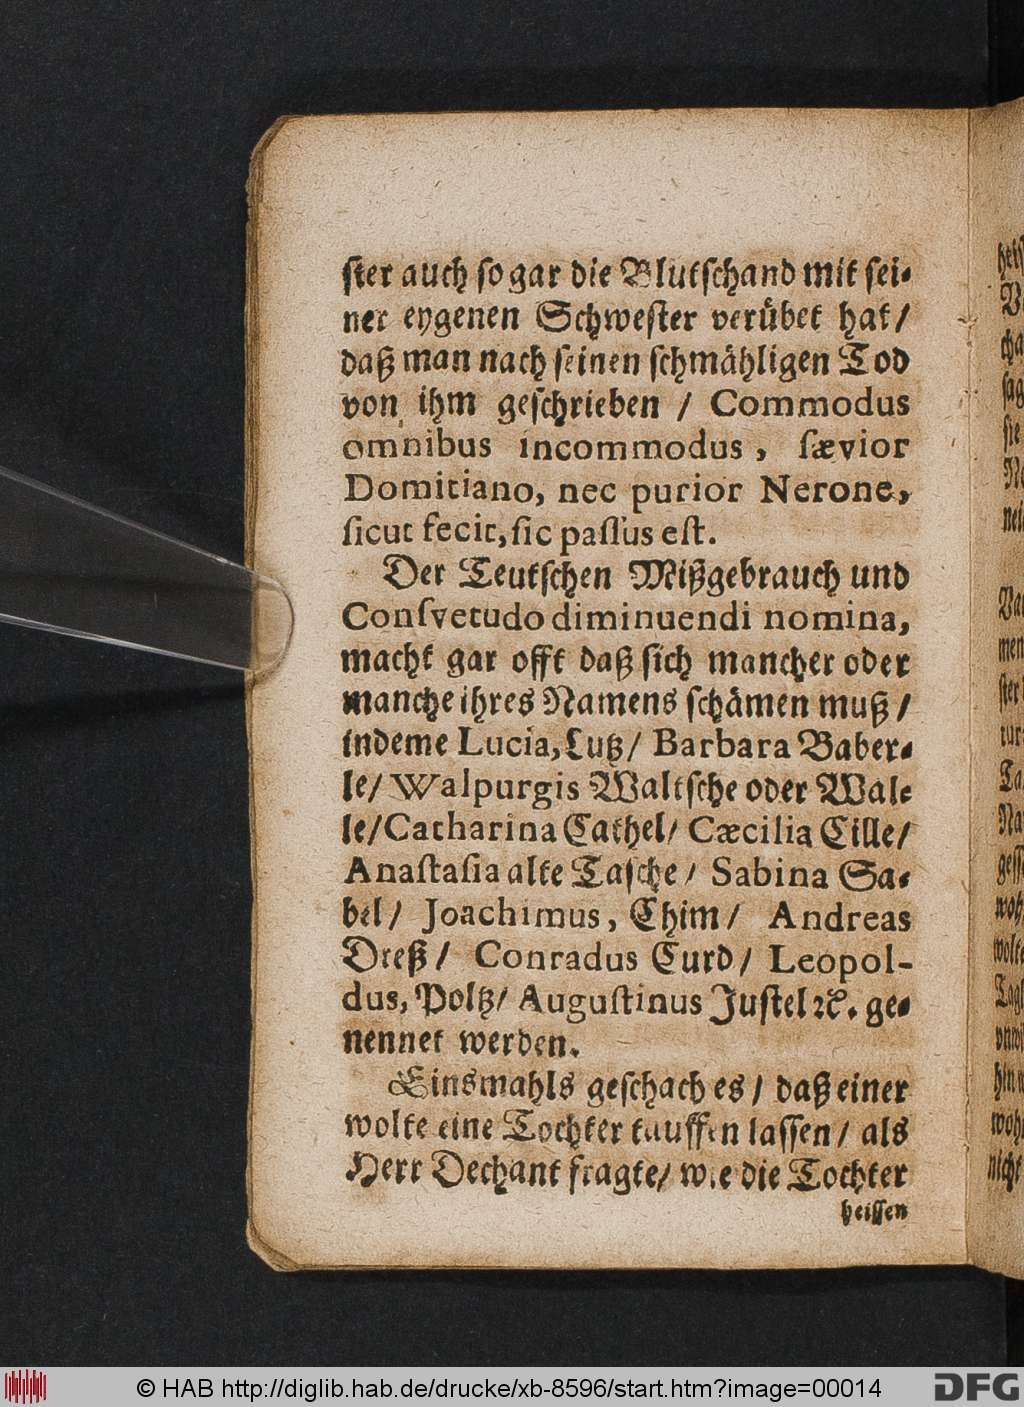 ster auch so gar die Blutschand mit sei-
ner eygenen Schwester verübet hat /
daß man nach seinen schmähligen Tod
von ihm geschrieben / Commodus
omnibus incommodus, sævior
Domitiano, nec purior Nerone,
sicut fecit, sic passus est.
Der Teutschen Mißgebrauch und
Consvetudo diminuendi nomina,
macht gar offt daß sich mancher oder
manche ihres Namens schämen muß /
indeme Lucia, Lutz / Barbara Baber-
le / Walpurgis Waltsche oder Wale-
le / Catharina Cathel / Cæcilia Cille /
Anastasia alte Tasche / Sabina Sa-
bel / Joachimus, Chim / Andreas
Dreß / Conradus Curd / Leopol-
dus, Poltz / Augustinus Justel ꝛc. ge-
nennet werden.
Einsmahls geschach es / daß einer
wolte eine Tochter tauffen lassen / als
Herr Dechant fragte / wie die Tochter
heissen
© HAB http://diglib.hab.de/drucke/xb-8596/start.htm?image=00014
DFG